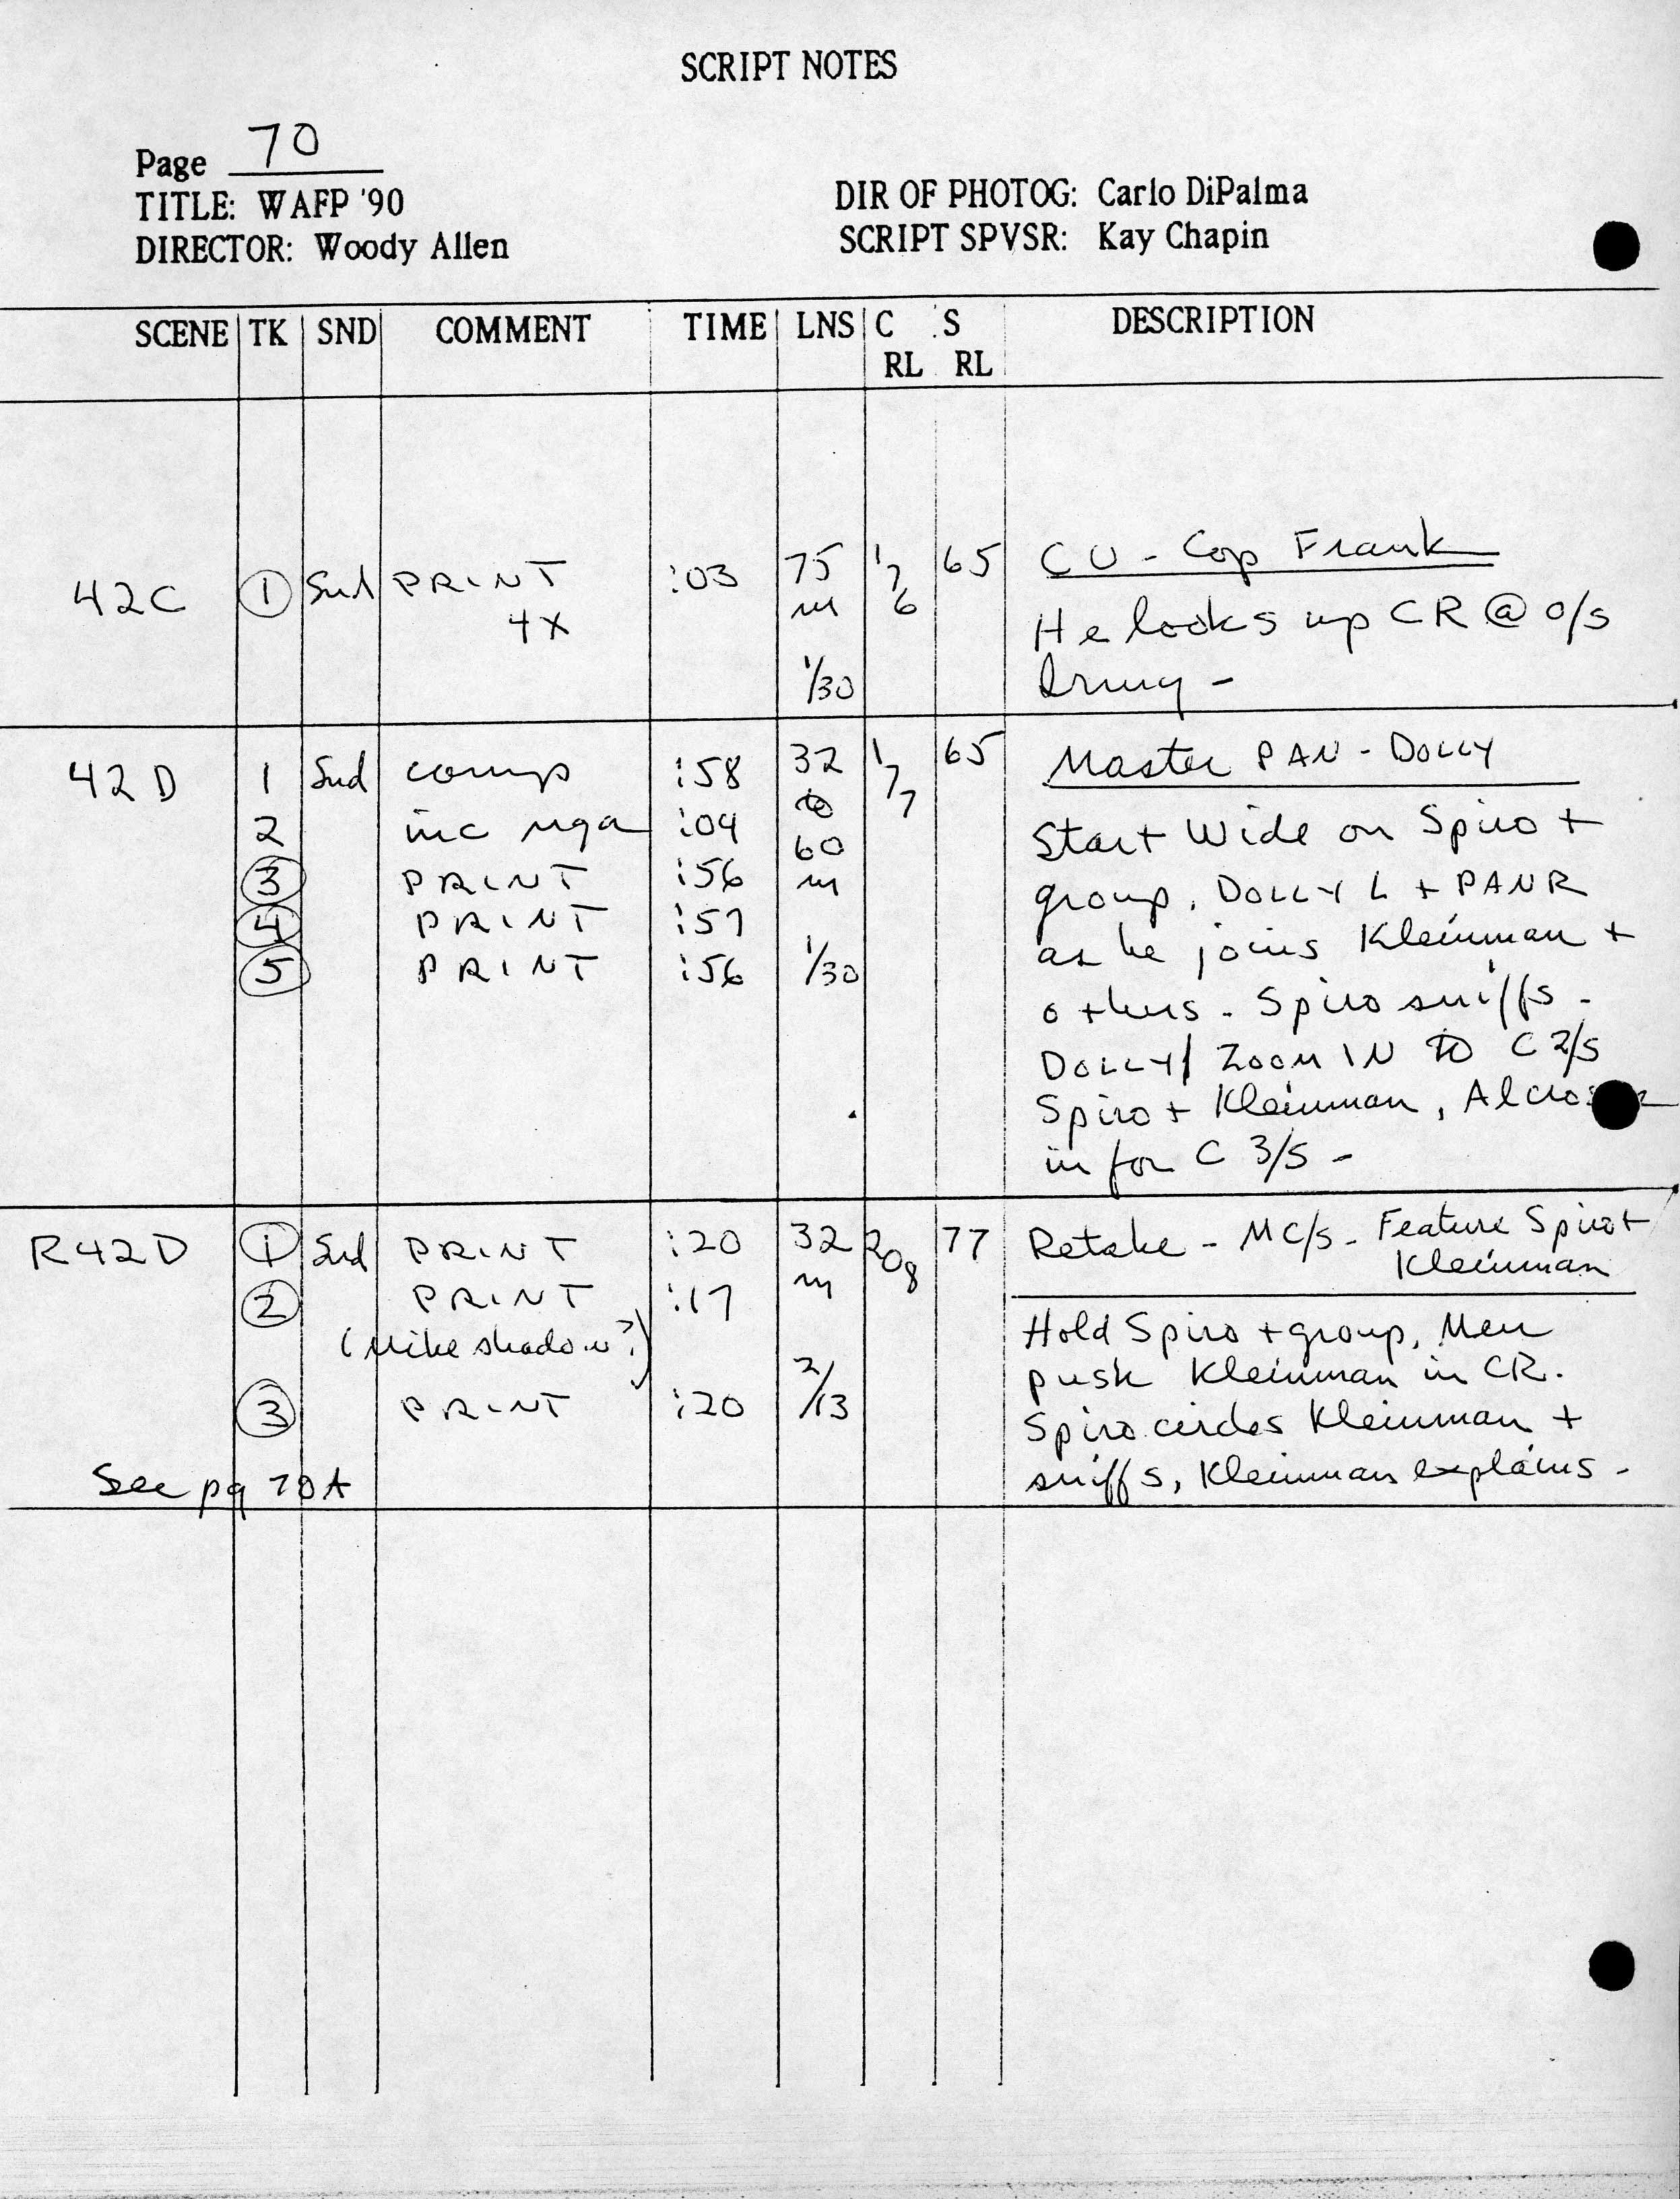 SCRIPT NOTES
Page 70
TITLE: WAFP '90
DIRECTOR: Woody Allen
DIR OF PHOTOG: Carlo DiPalma
SCRIPT SPVSR: Kay Chapin
SCENE TK SND COMMENT TIME LNS C RL S RL DESCRIPTION
42C 1 Snd PRINT :03 75 176 65 CU - Cop Frank
4X m He looks up CR @ o/s
1/30
42D 1 Snd comp :58 32 177 65 Master PAN - DOLLY
2 inc nga :04 to Start Wide on Spiro +
3 PRINT :56 60 m group. DOLLY L + PAN R
4 PRINT :57 as he joins Kleinman +
5 PRINT :56 1/30 others - Spiro sniffs -
DOLLY/ ZOOM IN TO C 2/S
Spiro + Kleinman, Al
in for C 3/S -
R42D 1 Snd PRINT :20 32 208 77 Retake - MC/S - Feature Spiro +
Kleinman
2 PRINT :17 m
(Mike shadow?) Hold Spiro + group, Men
2/13 push Kleinman in CR.
3 PRINT :20 Spiro circles Kleinman +
See pg 70A sniffs, Kleinman explains -